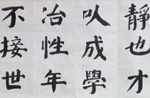 靜也才
以成學
冶性年
不接世